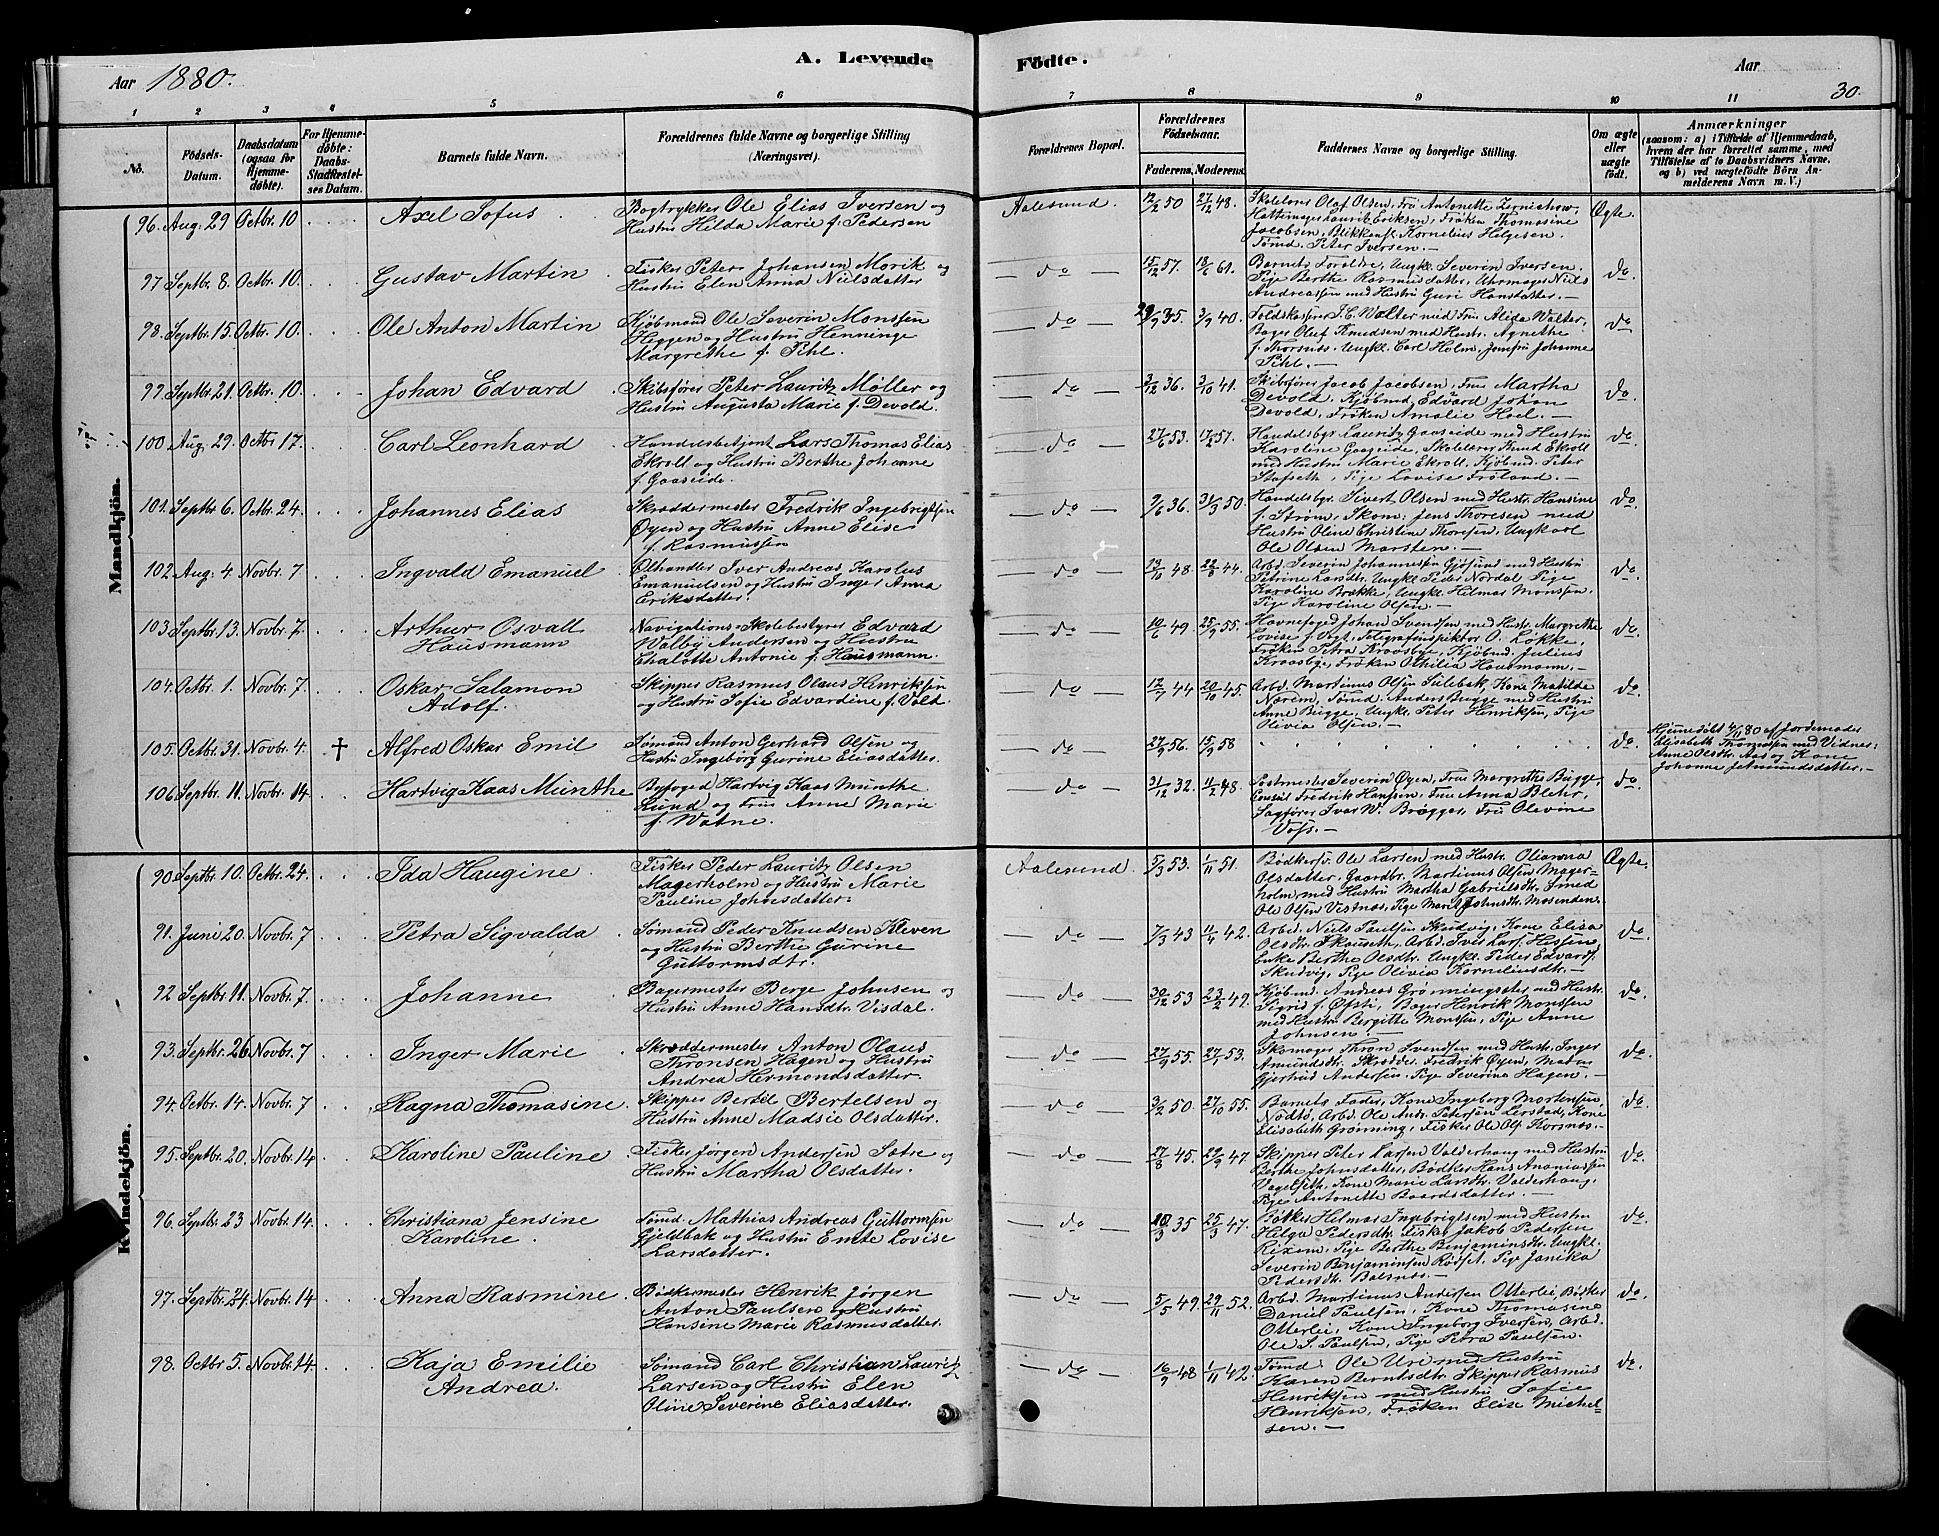 A. Levende Födte.
Aar 1880.
Aar
30.
1 2 3 4 5 6 7 8 9 10 11
No.
Födsels-
Datum.
Daabsdatum
(ogsaa for
Hjemme-
döbte).
For Hjemme-
döbte:
Daabs-
Stadfæstel-
ses Datum.
Barnets fulde Navn.
Forældrenes fulde Navne og borgerlige Stilling
(Næringsvei).
Forældrenes Bopæl.
Forældrenes
Födselsaar.
Faderens. Moderens.
Faddernes Navne og borgerlige Stilling.
Om ægte
eller
uægte
födt.
Anmærkninger
(saasom: a) i Tilfælde af Hjemmedaab,
hvem der har forrettet samme, med
Tilföielse af to Daabsvidners Navne,
og b) ved uægtefödte Börn An-
melderens Navn m. V.)
Mandkjön.
96. Aug. 29 Octbr. 10 Axel Sofus
Bogtrykker Ole Elias Iversen og
Hustru Hilda Marie f. Pedersen
Aalesund. 12/2 50 27/12 48.
Skolelærer Olaf Olsen, Fru Antonette
Hattemager Laurits Eriksen, Frøken Thomasine
Jacobsen, Blikkensl. Kornelius Helgesen.
Tømd. Peter Iversen.
Ægte.
97 Septbr. 8. Octbr. 10. Gustav Martin
Fisker Peter Johansen Morik og
Hustru Elen Anna Nielsdatter
do 15/12 57. 18/6 61.
Barnets Forældre, Ungkl. Severin Iversen.
Pige Berthe Rasmusdatter, Uhrmager Niels
Andreassen med Hustru Guri Hansdatter.
do
98. Septbr. 15. Octbr. 10. Ole Anton Martin
Kjøbmand Ole Severin Monssen
Heggen og Hustru Henninge
Margrethe f. Pihl.
do 29/9 35. 3/9 40.
Toldkasserer J.C. Walter med Fru Alida Walter,
Bager Oluf Knudsen med Hustr. Agnethe
f. Thorsnes. Ungkl. Carl Holm, Jomfru Johanne
Pihl.
do
99. Septbr. 21. Octbr. 10. Johan Edvard
Skibsfører Peter Lauritz Møller og
Hustru Augusta Marie f. Devold.
do 3/12 36. 3/10 41.
Skibsfører Jacob Jacobsen, Frue Martha
Devold, Kjøbmd. Edvard Johan
Devold, Frøken Amalie Hoel.
do.
100 Aug. 29. Octbr. 17. Carl Leonhard
Handelsbetjent Lars Thomas Elias
Ekroll og Hustru Berthe Johanne
f. Gaaseide.
do 27/6 53. 17/2 57.
Handelsbgr. Lauritz Gaaseide med Hustru
Karoline Gaaseide, Skolelærer Knud Ekroll
med Hustru Marie Ekroll. Kjøbmd. Peter
Stafseth, Pige Lovise Frøland.
do
101. Septbr. 6. Octbr. 24. Johannes Elias
Skræddermester Fredrik Ingebrigtsen
Øyen og Hustru Anne Elise
f. Rasmussen
do 9/6 36. 31/3 50.
Handelsbgr. Sivert Olsen med Hustr. Hansine
f. Strøm, Skom. Jens Thoresen med
Hustru Oline Christine Thoresen, Ungkarl
Ole Olsen Marsten.
do
102 Aug. 4. Novbr. 7 Ingvald Emanuel
Ølhandler Iver Andreas Karolus
Emanuelsen og Hustru Inger Anna
Eriksdatter.
do 48. 44.
Arbd. Severin Johannesen Gjøsund med Hustru
Petrine Larsdtr. Ungkl. Peder Nordal, Pige
Karoline Brække, Ungkl. Hilmar Monssen.
Pige Karoline Olsen.
do
103 Septbr. 13. Novbr. 7. Arthur Osvall
Hausmann
Navigations-Skolebestyrer Edvard
Walby Andersen og Hustru
Chalotte Antonie f. Hausmann.
do 10/6 49. 25/9 55.
Havnefoged Johan Svendsen med Hustr. Margrethe
Lovise f. Vogt. Telegrafinspektør O. Løkke,
Frøken Petra Kraasbye, Kjøbmd. Julius
Kraasbye, Frøken Othilia Hausmann.
do
104. Octbr. 1. Novbr. 7. Oskar Salamon
Adolf.
Skipper Rasmus Olaus Henriksen
og Hustru Sofie Edvardine f. Vold.
do 44 20/10 45.
Arbd. Martinus Olsen Sulebak, Kone Matilde
Noren, Tømd. Anders Bugge med Hustru
Anne Bugge, Ungkl. Peter Henriksen, Pige
Olivia Olsen.
do
105. Octbr. 31. Novbr. 4. † Alfred Oskar Emil
Sømand Anton Gerhard Olsen og
Hustru Ingeborg Gurine Eliasdatter.
do 27/9 56. 15/9 58
do.
Hjemedøbt 4/11 80 af Jordemoder
Elisabeth med Vidner:
Anne Olsdtr. Aas og Kone
Johanne Jetmundsdatter.
106 Septbr. 11. Novbr. 14. Hartvig Kaas Munthe
Byfoged Hartvig Kaas Munthe
Lund og Frue Anne Marie
f. Watne.
do 31/12 32. 11/2 48.
Postmester Severin Øyen, Frue Margrethe Bugge,
Consul Fredrik Hanssen, Frue Anna Blehr,
Sagfører Ivar W. Brøgger, Fru Olevine
Voss.
do.
Kvindekjön.
90. Septbr. 10. Octbr. 24. Ida Haugine
Fisker Peder Lauritz Olsen
Magerholm og Hustru Marie
Pauline Johnsdatter.
Aalesund. 5/3 53. 1/11 51.
Bødkersv. Ole Larsen med Hustr. Olianna
Olsdatter. Gaardbr. Martinus Olsen Mager-
holm med Hustru Martha Gabrielsdtr. Smed
Ole Olsen Vestnes, Pige Marit Johnsdtr. Mosenden.
Ægte.
91. Juni 20. Novbr. 7 Petra Sigvalda
Sømand Peder Knudsen Kleven
og Hustru Berthe Gurine
Guttormsdtr.
do 7/3 43 11/4 42.
Arbd. Niels Paulsen Skudvig, Kone Elisa
Olsdtr. Skouseth, Arbd. Iver Lars. Hessen,
Enke Berthe Olsdtr. Ungkl. Peder Edvards.
Skudvig, Pige Olivia Korneliusdtr.
do.
92 Septbr. 11. Novbr. 7. Johanne
Bagermester Berge Johnsen og
Hustru Anne Hansdtr. Visdal.
do 30/12 53 23/2 49.
Kjøbmd. Andreas Grønningsæter med Hustr.
Sigrid f. Øfsti, Bager Henrik Monssen
med Hustru Bergitte Monssen, Pige Anne
Johnsen.
do.
93. Septbr. 26. Novbr. 7 Inger Marie
Skræddermester Anton Olaus
Thronsen Hagen og Hustru
Andrea Hermondsdatter.
do 27/9 55. 27/1 53.
Skomager Thron Svendsen med Hustr. Inger
Amundsdtr. Skrædder Fredrik Øyen, Madm.
Gjertrud Andersen. Pige Severine Hagen.
do.
94. Octbr. 14. Novbr. 7 Ragna Thomasine
Skipper Bertil Bertelsen og
Hustru Anne Madsie Olsdatter.
do 3/2 50. 27/10 55.
Barnets Fader, Kone Ingeborg Mortensen
Nødtø, Arbd. Ole Andr. Petersen Lerstad, Kone
Elisabeth Grønning, Fisker Ole Ols. Korsnes.
do.
95. Septbr. 20. Novbr. 14 Karoline Pauline
Fisker Jørgen Andersen Sætre og
Hustru Martha Olsdatter.
do 27/8 45. 29/9 47
Skipper Peter Larsen Valderhaug med Hustru
Berthe Johnsdatter, Bødker Hans Ananiassen
Vagelseth, Kone Marie Larsdtr. Valderhaug,
Pige Antonette Baardsdatter.
do.
96. Septbr. 23 Novbr. 14. Christiana Jensine
Karoline.
Tømd. Mathias Andreas Guttormsen
Gjeldbak og Hustru Emte Lovise
Larsdatter.
do 35 25/3 47.
Bødker Helmar Ingebrigtsen med Hustru
Helga Pedersdtr. Fisker Jakob Pedersen
Rixem, Pige Berthe Benjaminsdtr. Ungkl.
Severin Benjaminsen Rødset, Pige Janika
Pedersdtr. Balsnes.
do.
97. Septbr. 24. Novbr. 14 Anna Rasmine
Bødkermester Henrik Jørgen
Anton Paulsen og Hustru
Hansine Marie Rasmusdatter.
do 5/5 49. 29/11 52.
Arbd. Martinus Andersen Otterlei, Bødker
Daniel Paulsen, Kone Thomasine
Otterlei, Kone Ingeborg Iversen, Arbd.
Ole S. Paulsen, Pige Petra Paulsen.
do.
98. Octbr. 5. Novbr. 14. Kaja Emilie
Andrea.
Sømand Carl Christian Lauritz
Larsen og Hustru Elen
Oline Severine Eliasdatter.
do 16/9 48 1/11 42.
Tømd. Ole Uri med Hustru
Karen Berntsdtr. Skipper Rasmus
Henriksen med Hustru Sofie
Henriksen, Frøken Elise Michel-
sen.
do.